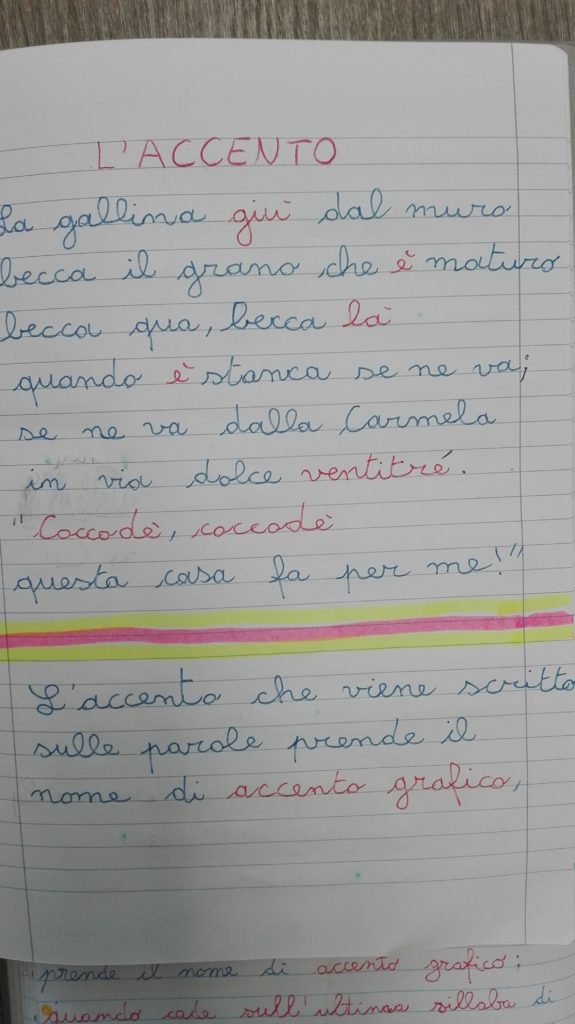 L'ACCENTO
La gallina giù dal muro
becca il grano che è maturo
becca qua, becca là
quando è stanca se ne va;
se ne va dalla Carmela
in via dolce ventitré.
"Coccodè, coccodè
questa casa fa per me!"
L'accento che viene scritto
sulle parole prende il
nome di accento grafico,
prende il nome di accento grafico;
quando cade sull'ultima sillaba di